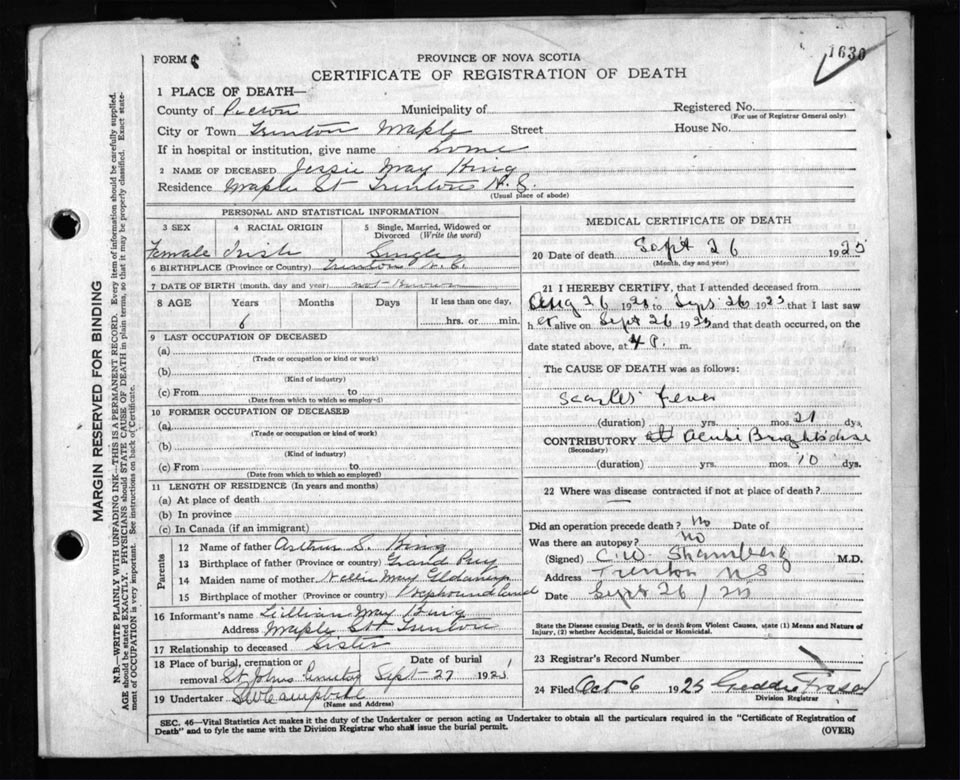 1630
FORM C
PROVINCE OF NOVA SCOTIA
CERTIFICATE OF REGISTRATION OF DEATH
1 PLACE OF DEATH—
County of Pictou Municipality of Registered No.
(For use of Registrar General only)
City or Town Trenton Maple Street House No.
If in hospital or institution, give name
2 NAME OF DECEASED Jessie May King
Residence Maple St Trenton N.S.
(Usual place of abode)
PERSONAL AND STATISTICAL INFORMATION
3 SEX 4 RACIAL ORIGIN 5 Single, Married, Widowed or Divorced (Write the word)
Female Irish Single
6 BIRTHPLACE (Province or Country) Trenton N.S.
7 DATE OF BIRTH (month, day and year) not known
8 AGE Years Months Days If less than one day,
6 hrs. or min.
9 LAST OCCUPATION OF DECEASED
(a)
(Trade or occupation or kind or work)
(b)
(Kind of industry)
(c) From to
(Date from which to which so employed)
10 FORMER OCCUPATION OF DECEASED
(a)
(Trade or occupation or kind of work)
(b)
(Kind of industry)
(c) From to
(Date from which to which so employed)
11 LENGTH OF RESIDENCE (In years and months)
(a) At place of death
(b) In province
(c) In Canada (if an immigrant)
Parents
12 Name of father Arthur S. King
13 Birthplace of father (Province or country) Grand Bay
14 Maiden name of mother Nellie May
15 Birthplace of mother (Province or country) Newfoundland
16 Informant's name Lillian May King
Address Maple St Trenton
17 Relationship to deceased Sister
18 Place of burial, cremation or removal Date of burial
St Johns Cemetery Sept 27 1925
19 Undertaker SW Campbell
(Name and Address)
MEDICAL CERTIFICATE OF DEATH
20 Date of death Sept 26 1925
(Month, day and year)
21 I HEREBY CERTIFY, that I attended deceased from
Aug 26 1925 to Sept 26 1925 that I last saw
her alive on Sept 26 1925 and that death occurred, on the
date stated above, at 4 P. m.
The CAUSE OF DEATH was as follows:
Scarlet Fever
(duration) yrs. mos. 21
CONTRIBUTORY Acute Brights dise
(Secondary)
(duration) yrs. mos. 10 dys.
22 Where was disease contracted if not at place of death?
Did an operation precede death? No Date of
Was there an autopsy? No
(Signed) C.W. M.D.
Address Trenton N S
Date Sept 26/25
State the Disease causing Death, or in death from Violent Causes, state (1) Means and Nature of
Injury, (2) whether Accidental, Suicidal or Homicidal.
23 Registrar's Record Number
24 Filed Oct 6 1925 Geddie Fraser
Division Registrar
SEC. 46—Vital Statistics Act makes it the duty of the Undertaker or person acting as Undertaker to obtain all the particulars required in the "Certificate of Registration of
Death" and to fyle the same with the Division Registrar who shall issue the burial permit. (OVER)
MARGIN RESERVED FOR BINDING
N.B.—WRITE PLAINLY WITH UNFADING INK—THIS IS A PERMANENT RECORD. Every item of information should be carefully supplied.
AGE should be stated EXACTLY. PHYSICIANS should STATE CAUSE OF DEATH in plain terms, so that it may be properly classified. Exact state-
ment of OCCUPATION is very important. See instructions on back of Certificate.